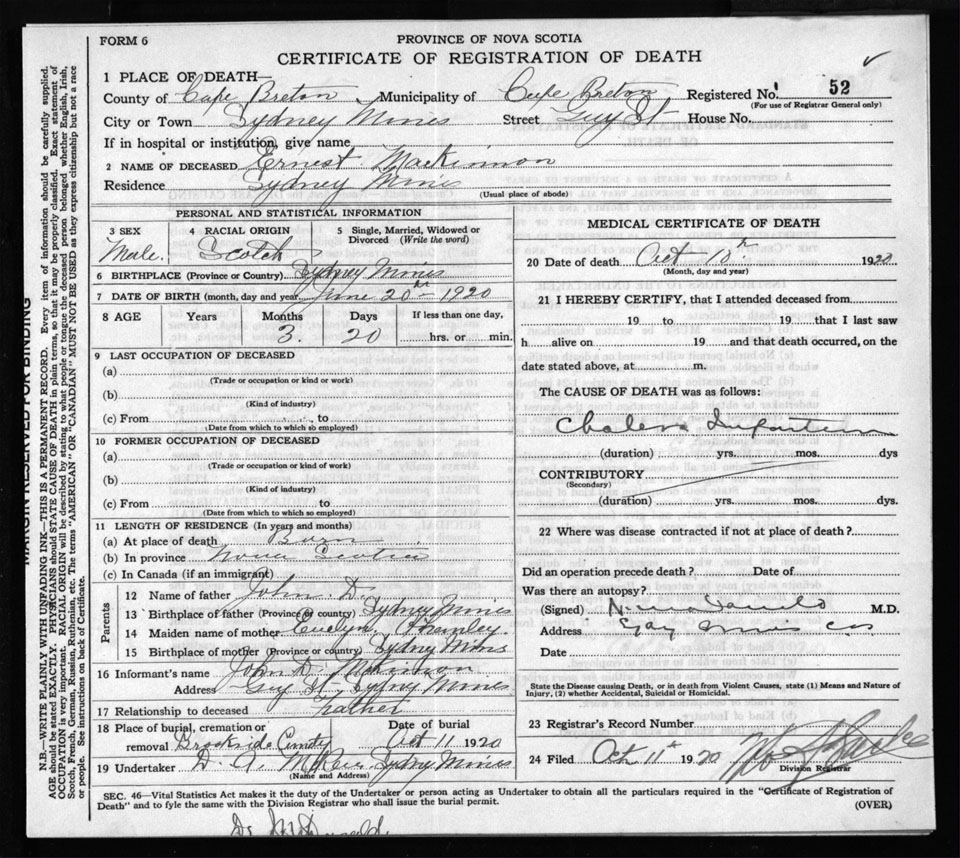 FORM 6
PROVINCE OF NOVA SCOTIA
CERTIFICATE OF REGISTRATION OF DEATH
1 PLACE OF DEATH—
County of Cape Breton Municipality of Cape Breton Registered No. 52
(For use of Registrar General only)
City or Town Sydney Mines Street St House No.
If in hospital or institution, give name
2 NAME OF DECEASED Ernest Mackinnon
Residence Sydney Mines
(Usual place of abode)
PERSONAL AND STATISTICAL INFORMATION
3 SEX 4 RACIAL ORIGIN 5 Single, Married, Widowed or Divorced (Write the word)
Male. Scotch
6 BIRTHPLACE (Province or Country) Sydney Mines
7 DATE OF BIRTH (month, day and year) June 20th – 1920
8 AGE Years Months Days If less than one day,
3. 20 hrs. or min.
9 LAST OCCUPATION OF DECEASED
(a)
(Trade or occupation or kind or work)
(b)
(Kind of industry)
(c) From to
(Date from which to which so employed)
10 FORMER OCCUPATION OF DECEASED
(a)
(Trade or occupation or kind of work)
(b)
(Kind of industry)
(c) From to
(Date from which to which so employed)
11 LENGTH OF RESIDENCE (In years and months)
(a) At place of death Born
(b) In province Nova Scotia
(c) In Canada (if an immigrant)
Parents
12 Name of father John D.
13 Birthplace of father (Province or country) Sydney Mines
14 Maiden name of mother Evelyn
15 Birthplace of mother (Province or country) Sydney Mines
16 Informant's name John D. McKinnon
Address St, Sydney Mines
17 Relationship to deceased Father
18 Place of burial, cremation or Date of burial
removal Brookside Cemty Oct 11 1920
19 Undertaker D. A. Sydney Mines
(Name and Address)
MEDICAL CERTIFICATE OF DEATH
20 Date of death Oct 10th 1920
(Month, day and year)
21 I HEREBY CERTIFY, that I attended deceased from
19 to 19 that I last saw
h alive on 19 and that death occurred, on the
date stated above, at m.
The CAUSE OF DEATH was as follows:
Cholera Infantum
(duration) yrs. mos. dys
CONTRIBUTORY
(Secondary)
(duration) yrs. mos. dys.
22 Where was disease contracted if not at place of death?
Did an operation precede death? Date of
Was there an autopsy?
(Signed) M.D.
Address
Date
State the Disease causing Death, or in death from Violent Causes, state (1) Means and Nature of
Injury, (2) whether Accidental, Suicidal or Homicidal.
23 Registrar's Record Number
24 Filed Oct 11th 1920
Division Registrar
SEC. 46—Vital Statistics Act makes it the duty of the Undertaker or person acting as Undertaker to obtain all the particulars required in the "Certificate of Registration of
Death" and to fyle the same with the Division Registrar who shall issue the burial permit. (OVER)
Dr McDonald
MARGIN RESERVED FOR BINDING
N.B.—WRITE PLAINLY WITH UNFADING INK—THIS IS A PERMANENT RECORD. Every item of information should be carefully supplied.
AGE should be stated EXACTLY. PHYSICIANS should STATE CAUSE OF DEATH in plain terms, so that it may be properly classified. Exact statement of
OCCUPATION is very important. RACIAL ORIGIN will be described by stating to what people or tongue the deceased person belonged whether English, Irish,
Scotch, French, German, Russian, Ruthenian, etc. The terms "AMERICAN" OR "CANADIAN" MUST NOT BE USED as they express citizenship but not a race
or people. See instructions on back of Certificate.